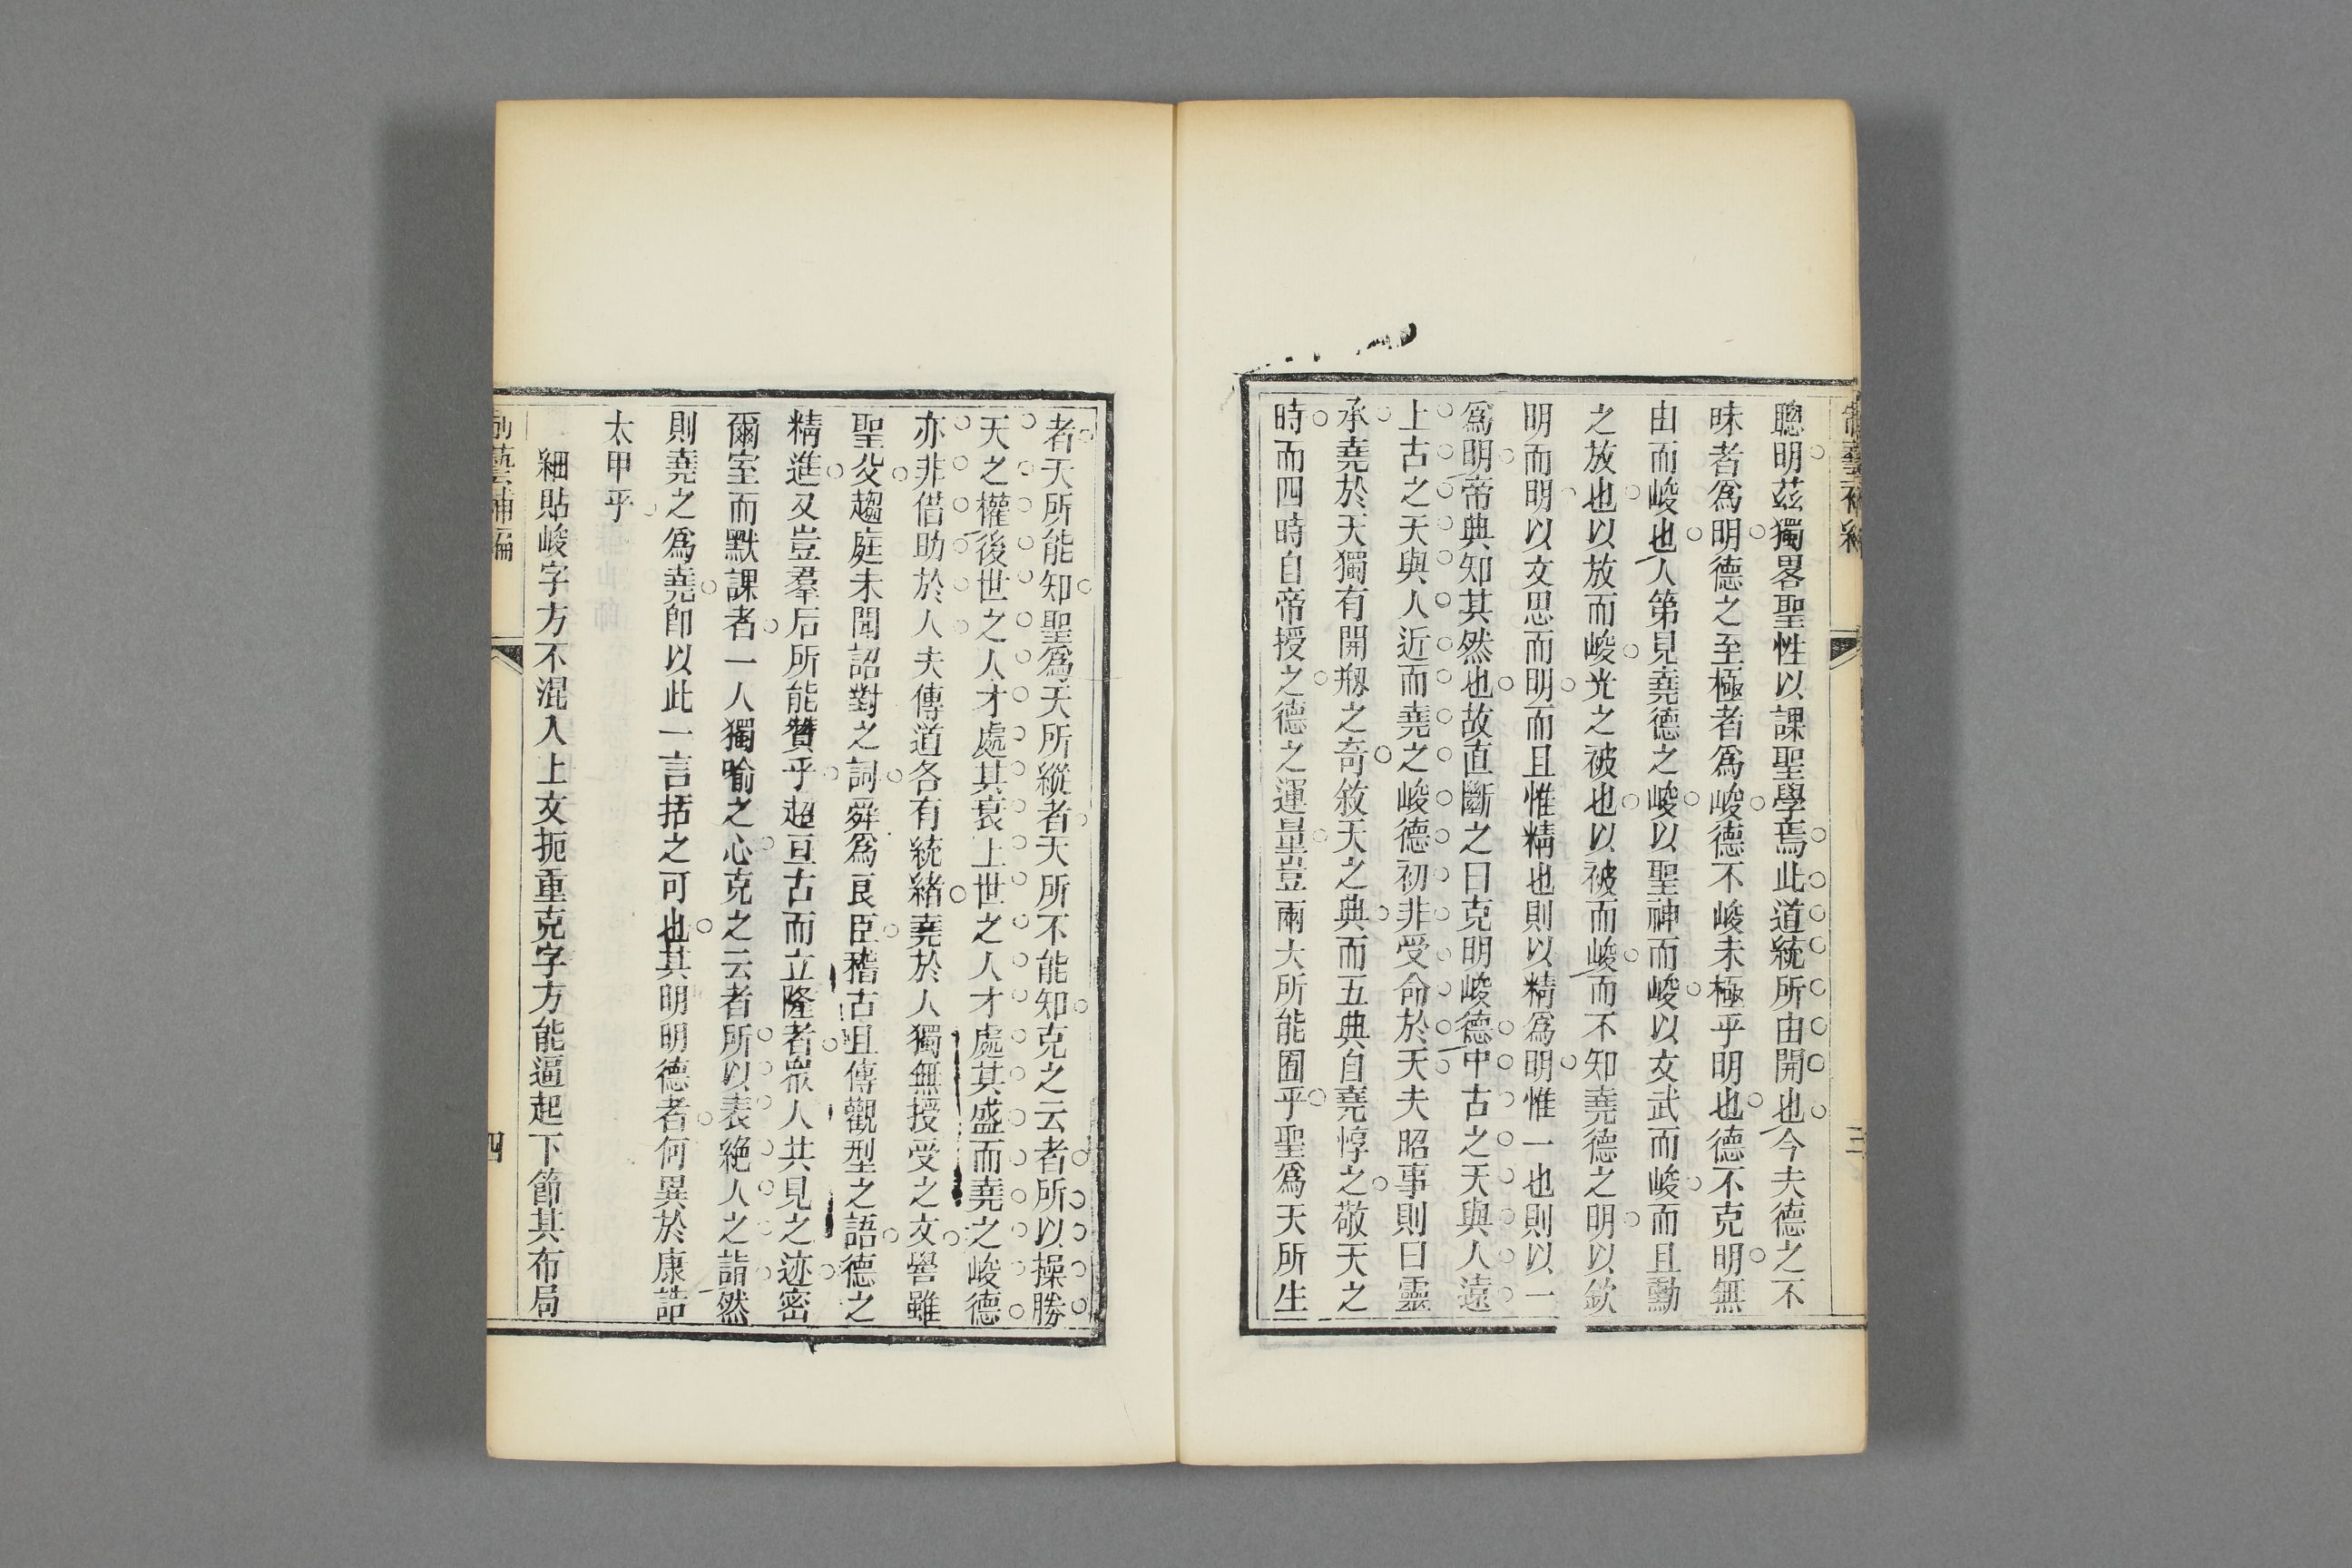 聰明茲獨畧聖性以課聖學焉此道統所由開也今夫德之不
昧者爲明德之至極者爲峻德不峻未極乎明也德不克明無
由而峻也人第見堯德之峻以聖神而峻以文武而峻而且勳
之放也以放而峻光之被也以被而峻而不知堯德之明以欽
明而明以文思而明而且惟精也則以精爲明惟一也則以一
爲明帝典知其然也故直斷之曰克明峻德中古之天與人遠
上古之天與人近而堯之峻德初非受命於天夫昭事則曰靈
承堯於天獨有開剏之奇敘天之典而五典自堯惇之敬天之
時而四時自帝授之德之運量豈兩大所能囿乎聖爲天所生
者天所能知聖爲天所縱者天所不能知克之云者所以操勝
天之權後世之人才處其衰上世之人才處其盛而堯之峻德
亦非借助於人夫傳道各有統緒堯於人獨無授受之文嚳雖
聖父趨庭未聞詔對之詞舜爲良臣稽古且傳觀型之語德之
精進又豈羣后所能贊乎超亘古而立隆者眾人共見之迹密
爾室而默課者一人獨喻之心克之云者所以表絶人之詣然
則堯之爲堯卽以此一言括之可也其明明德者何異於康誥
太甲乎
細貼峻字方不混入上文扼重克字方能逼起下節其布局
制藝補編
四